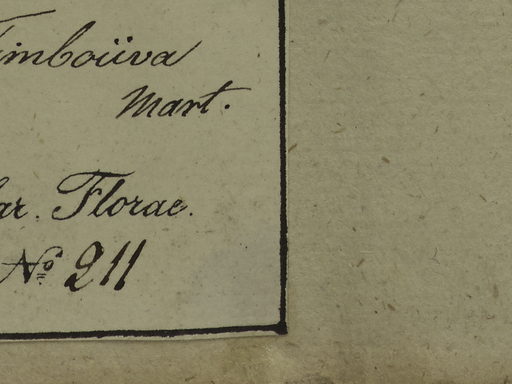 Timboüva
Mart.
ar. Florae.
No 211